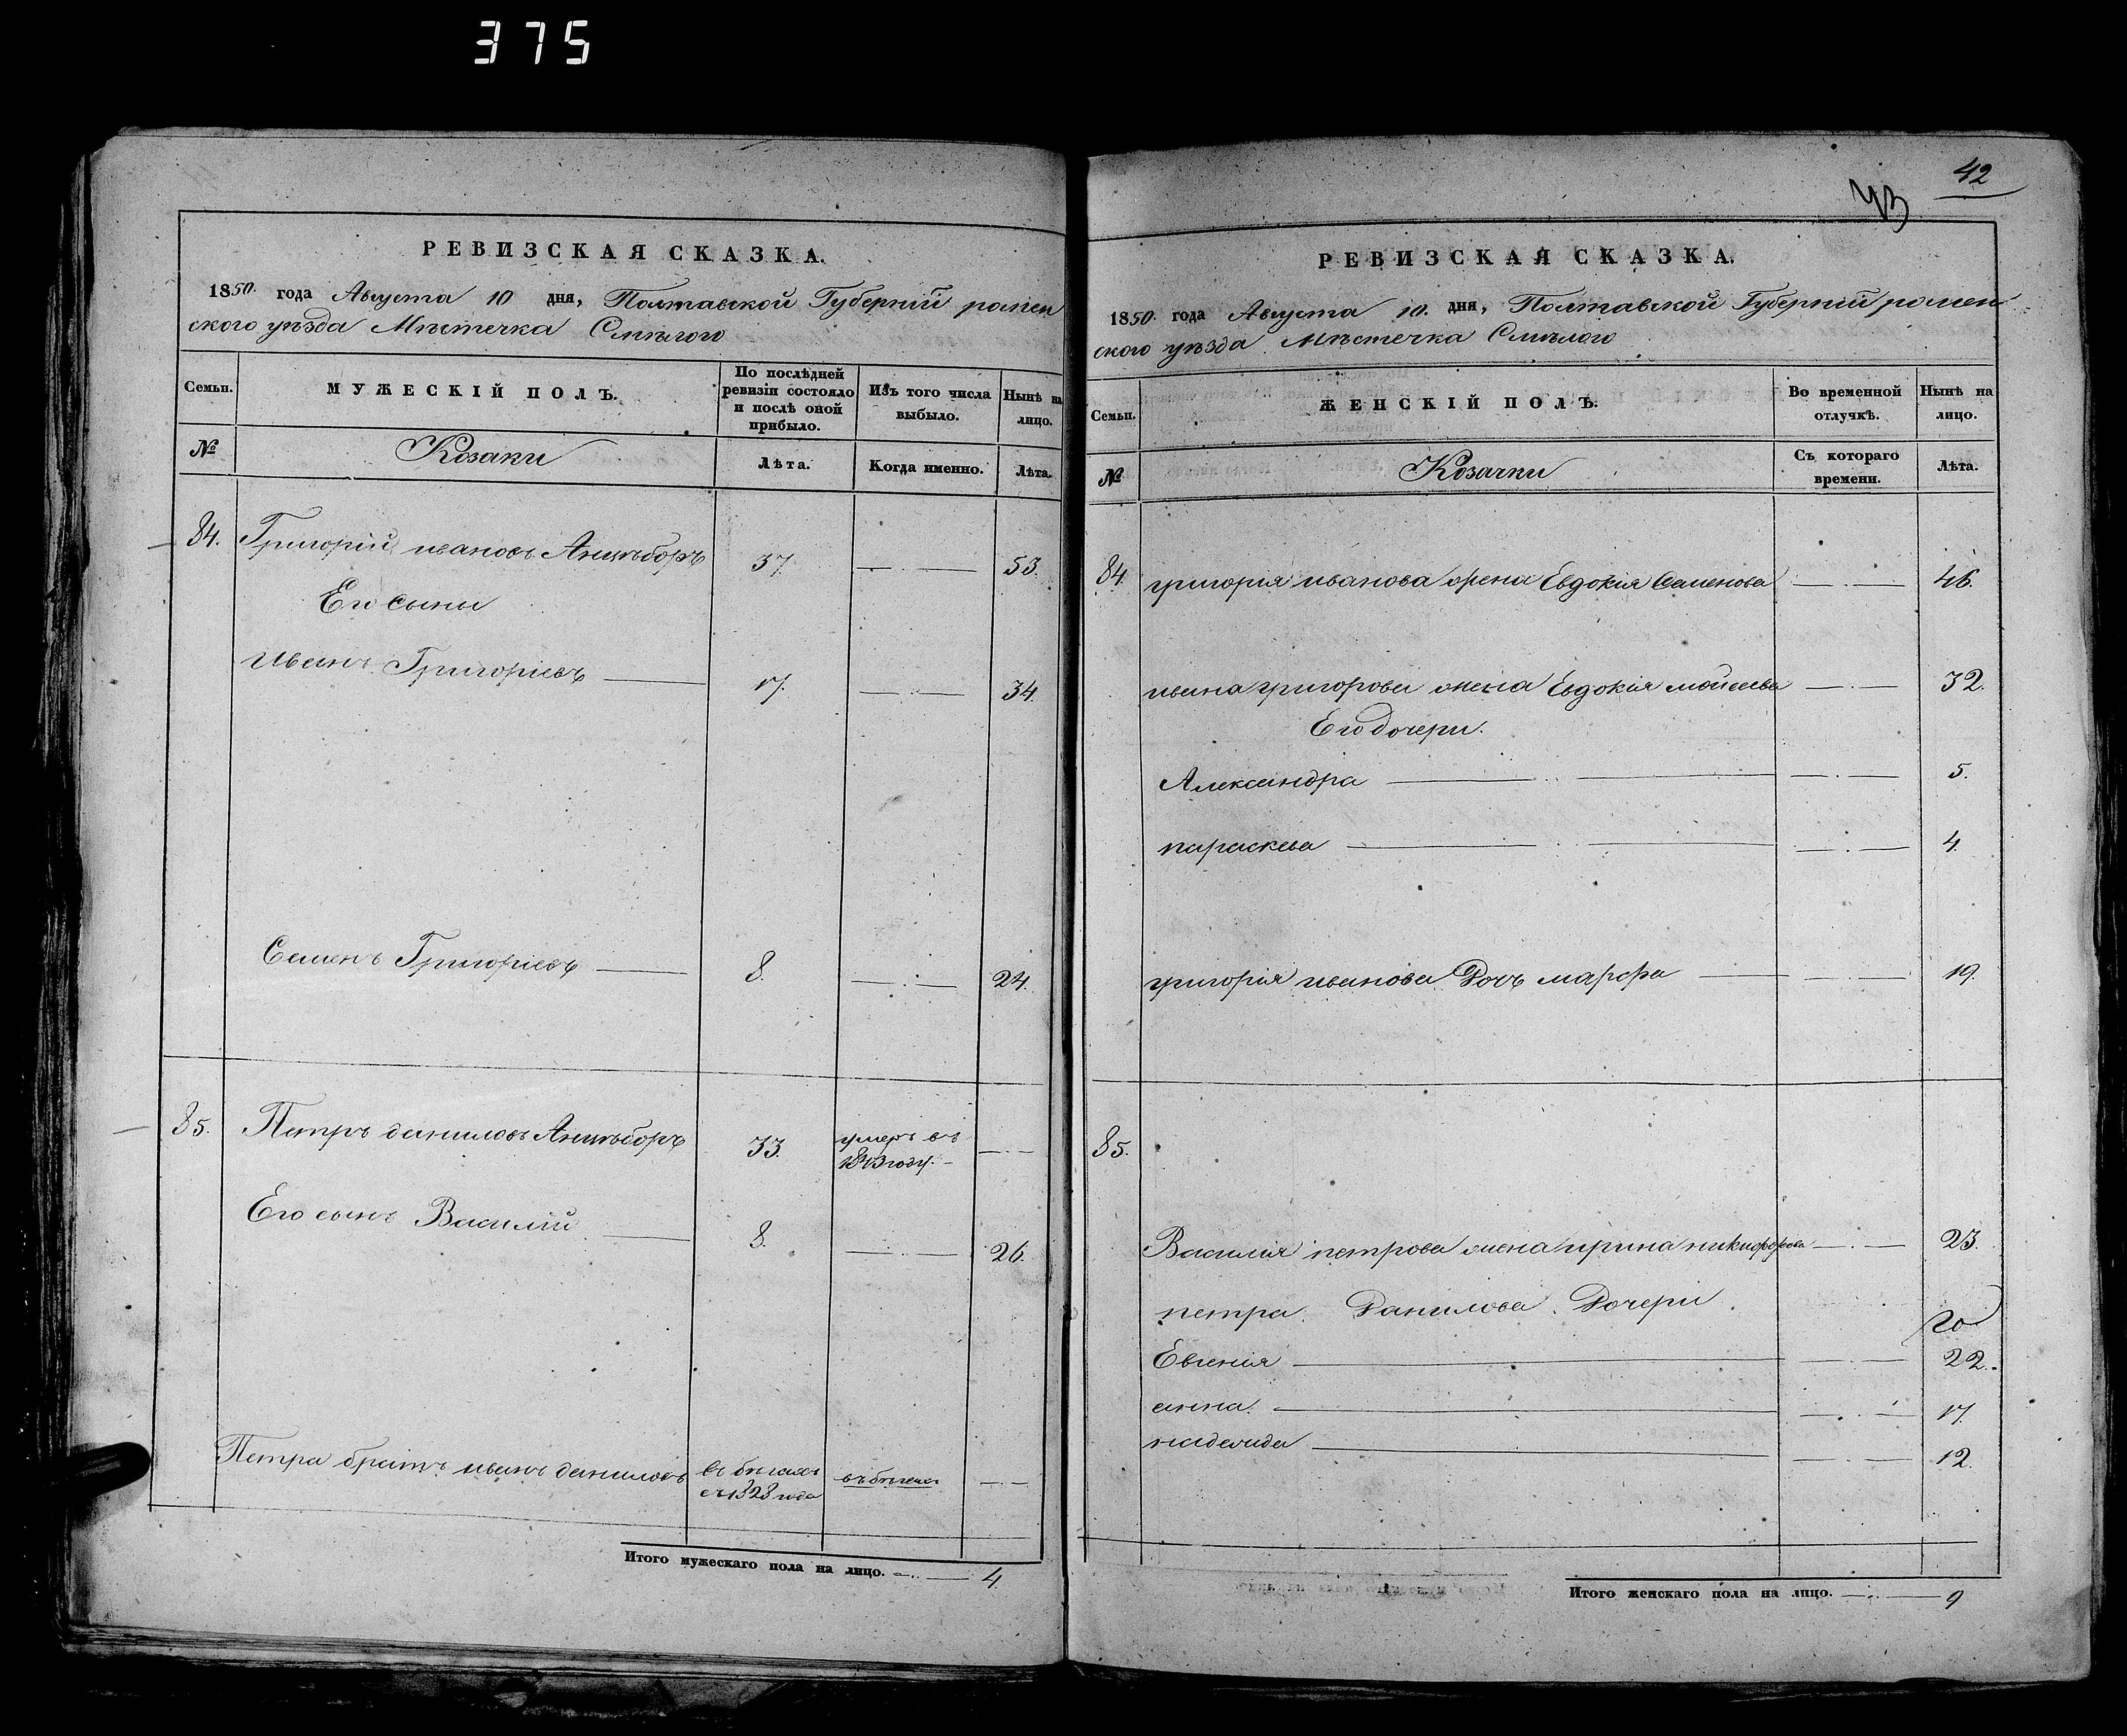 375
РЕВИЗСКАЯ СКАЗКА.
1850. года Августа 10 дня, Полтавской Губернiй ромен
ского уѣзда Мѣстечка Смѣлого
Семьи.
МУЖЕСКIЙ ПОЛЪ.
По послѣдней
ревизiи состояло
и послѣ оной
прибыло.
Изъ того числа
выбыло.
Нынѣ на
лицо.
№
Козаки
Лѣта.
Когда именно.
Лѣта.
84. Григорiй ивановъ 37 53.
Его сыны
иванъ Григорiевъ 17. 34.
Семенъ Григорiевъ 8. 24.
85. Петръ даниловъ 33. умеръ въ
1843 году.
Его сынъ Василiй 8. 26.
Петра братъ иванъ даниловъ въ бѣгахъ въ бѣгахъ
съ 1828 года
Итого мужескаго пола на лицо. 4.
42
43
РЕВИЗСКАЯ СКАЗКА.
1850. года Августа 10. дня, Полтавской Губернiй ромен
ского уѣзда Мѣстечка Смѣлого
Семьи.
ЖЕНСКIЙ ПОЛЪ.
Во временной
отлучкѣ.
Нынѣ на
лицо.
№
Козачки
Съ котораго
времени.
Лѣта.
84. григорiя иванова жена Евдокiя Семенова 46.
ивана григорова жена Евдокiя мойсеева 32.
Его дочери.
Александра 5.
параскева 4.
григорiя иванова Дочъ марфа 19.
85.
Василiя петрова жена ирина никифорова 23.
петра Данилова Дочери
Евгенiя 22.
анна. 17.
надежда 12.
Итого женскаго пола на лицо. 9